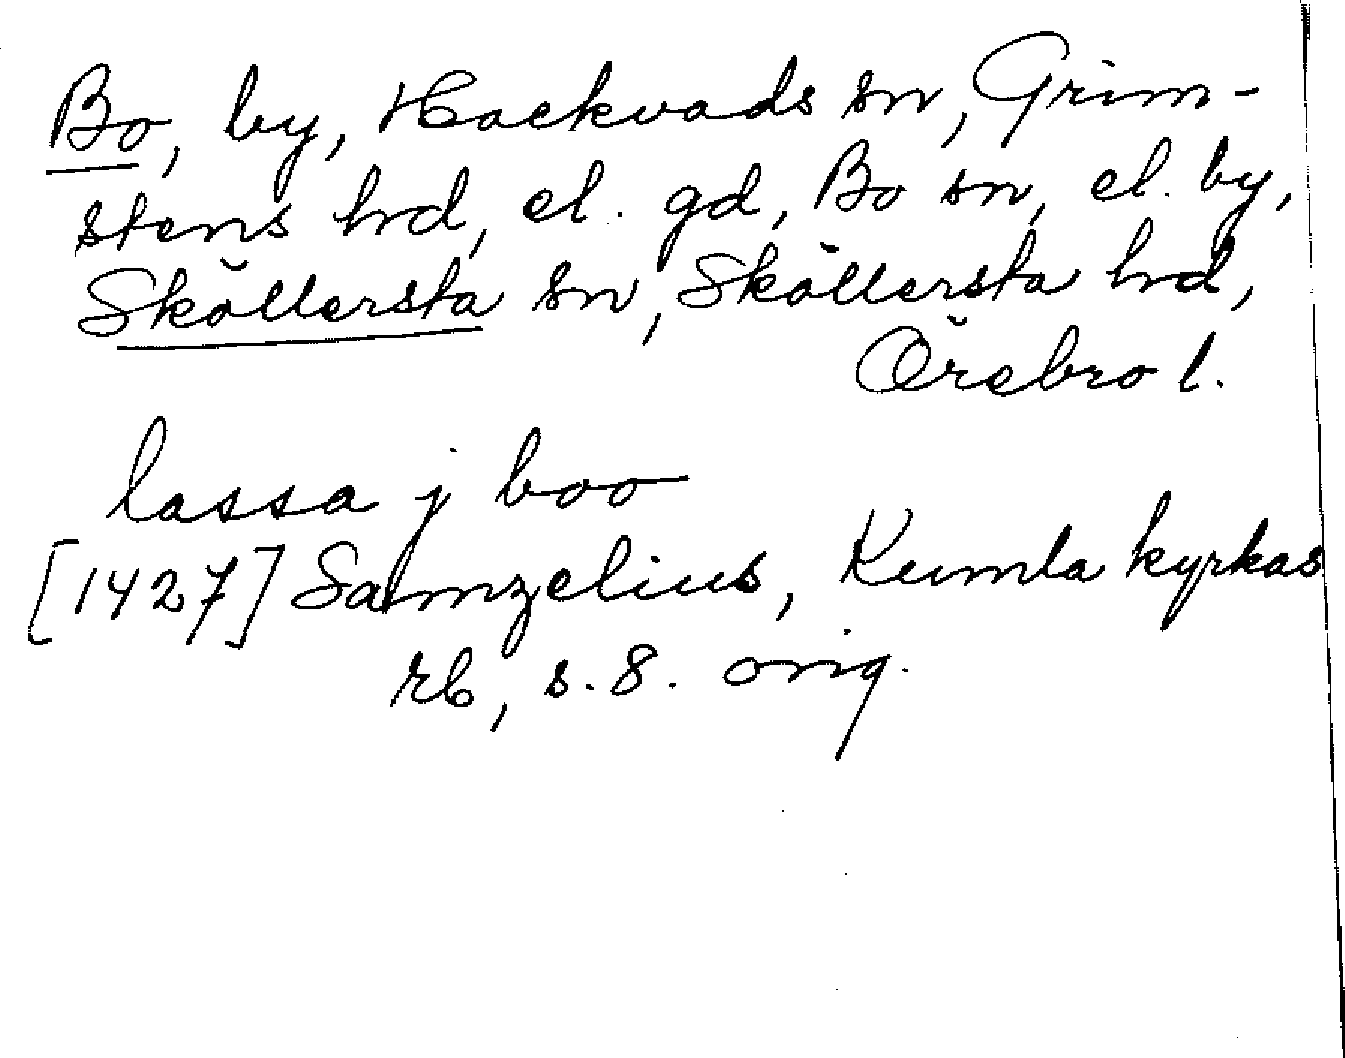 Bo, by, Hackvads sn, Grim-
stens hrd, el. gd, Bo sn, el. by,
Sköllersta sn, Sköllersta hrd,
Örebro l.
lassa j boo
[1427] Samzelius, Kumla kyrkas
rb, s. 8. orig.